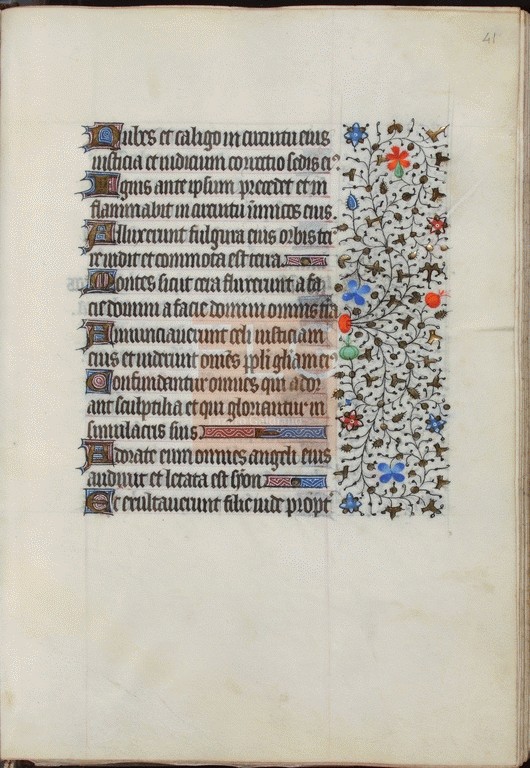 41
Nubes et caligo in circuitu eius
iusticia et iudicium correctio sedis ei⁹
Ignis ante ipsum precedet et in
flammabit in circuitu inimicos eius.
Alluxerunt fulgura eius orbis ter
re vidit et commota est terra.
Montes sicut cera fluxerunt a fa
cie domini a facie domini omnis tr̄a
Annunciaverunt celi iusticiam
eius et viderunt om̄es pp̄li gl̄iam ei⁹
Confundantur omnes qui ador
ant sculptilia et qui gloriantur in
simulacris suis
Adorate eum omnes angeli eius
audivit et letata est syon
Et exultaverunt filie iude propt̄